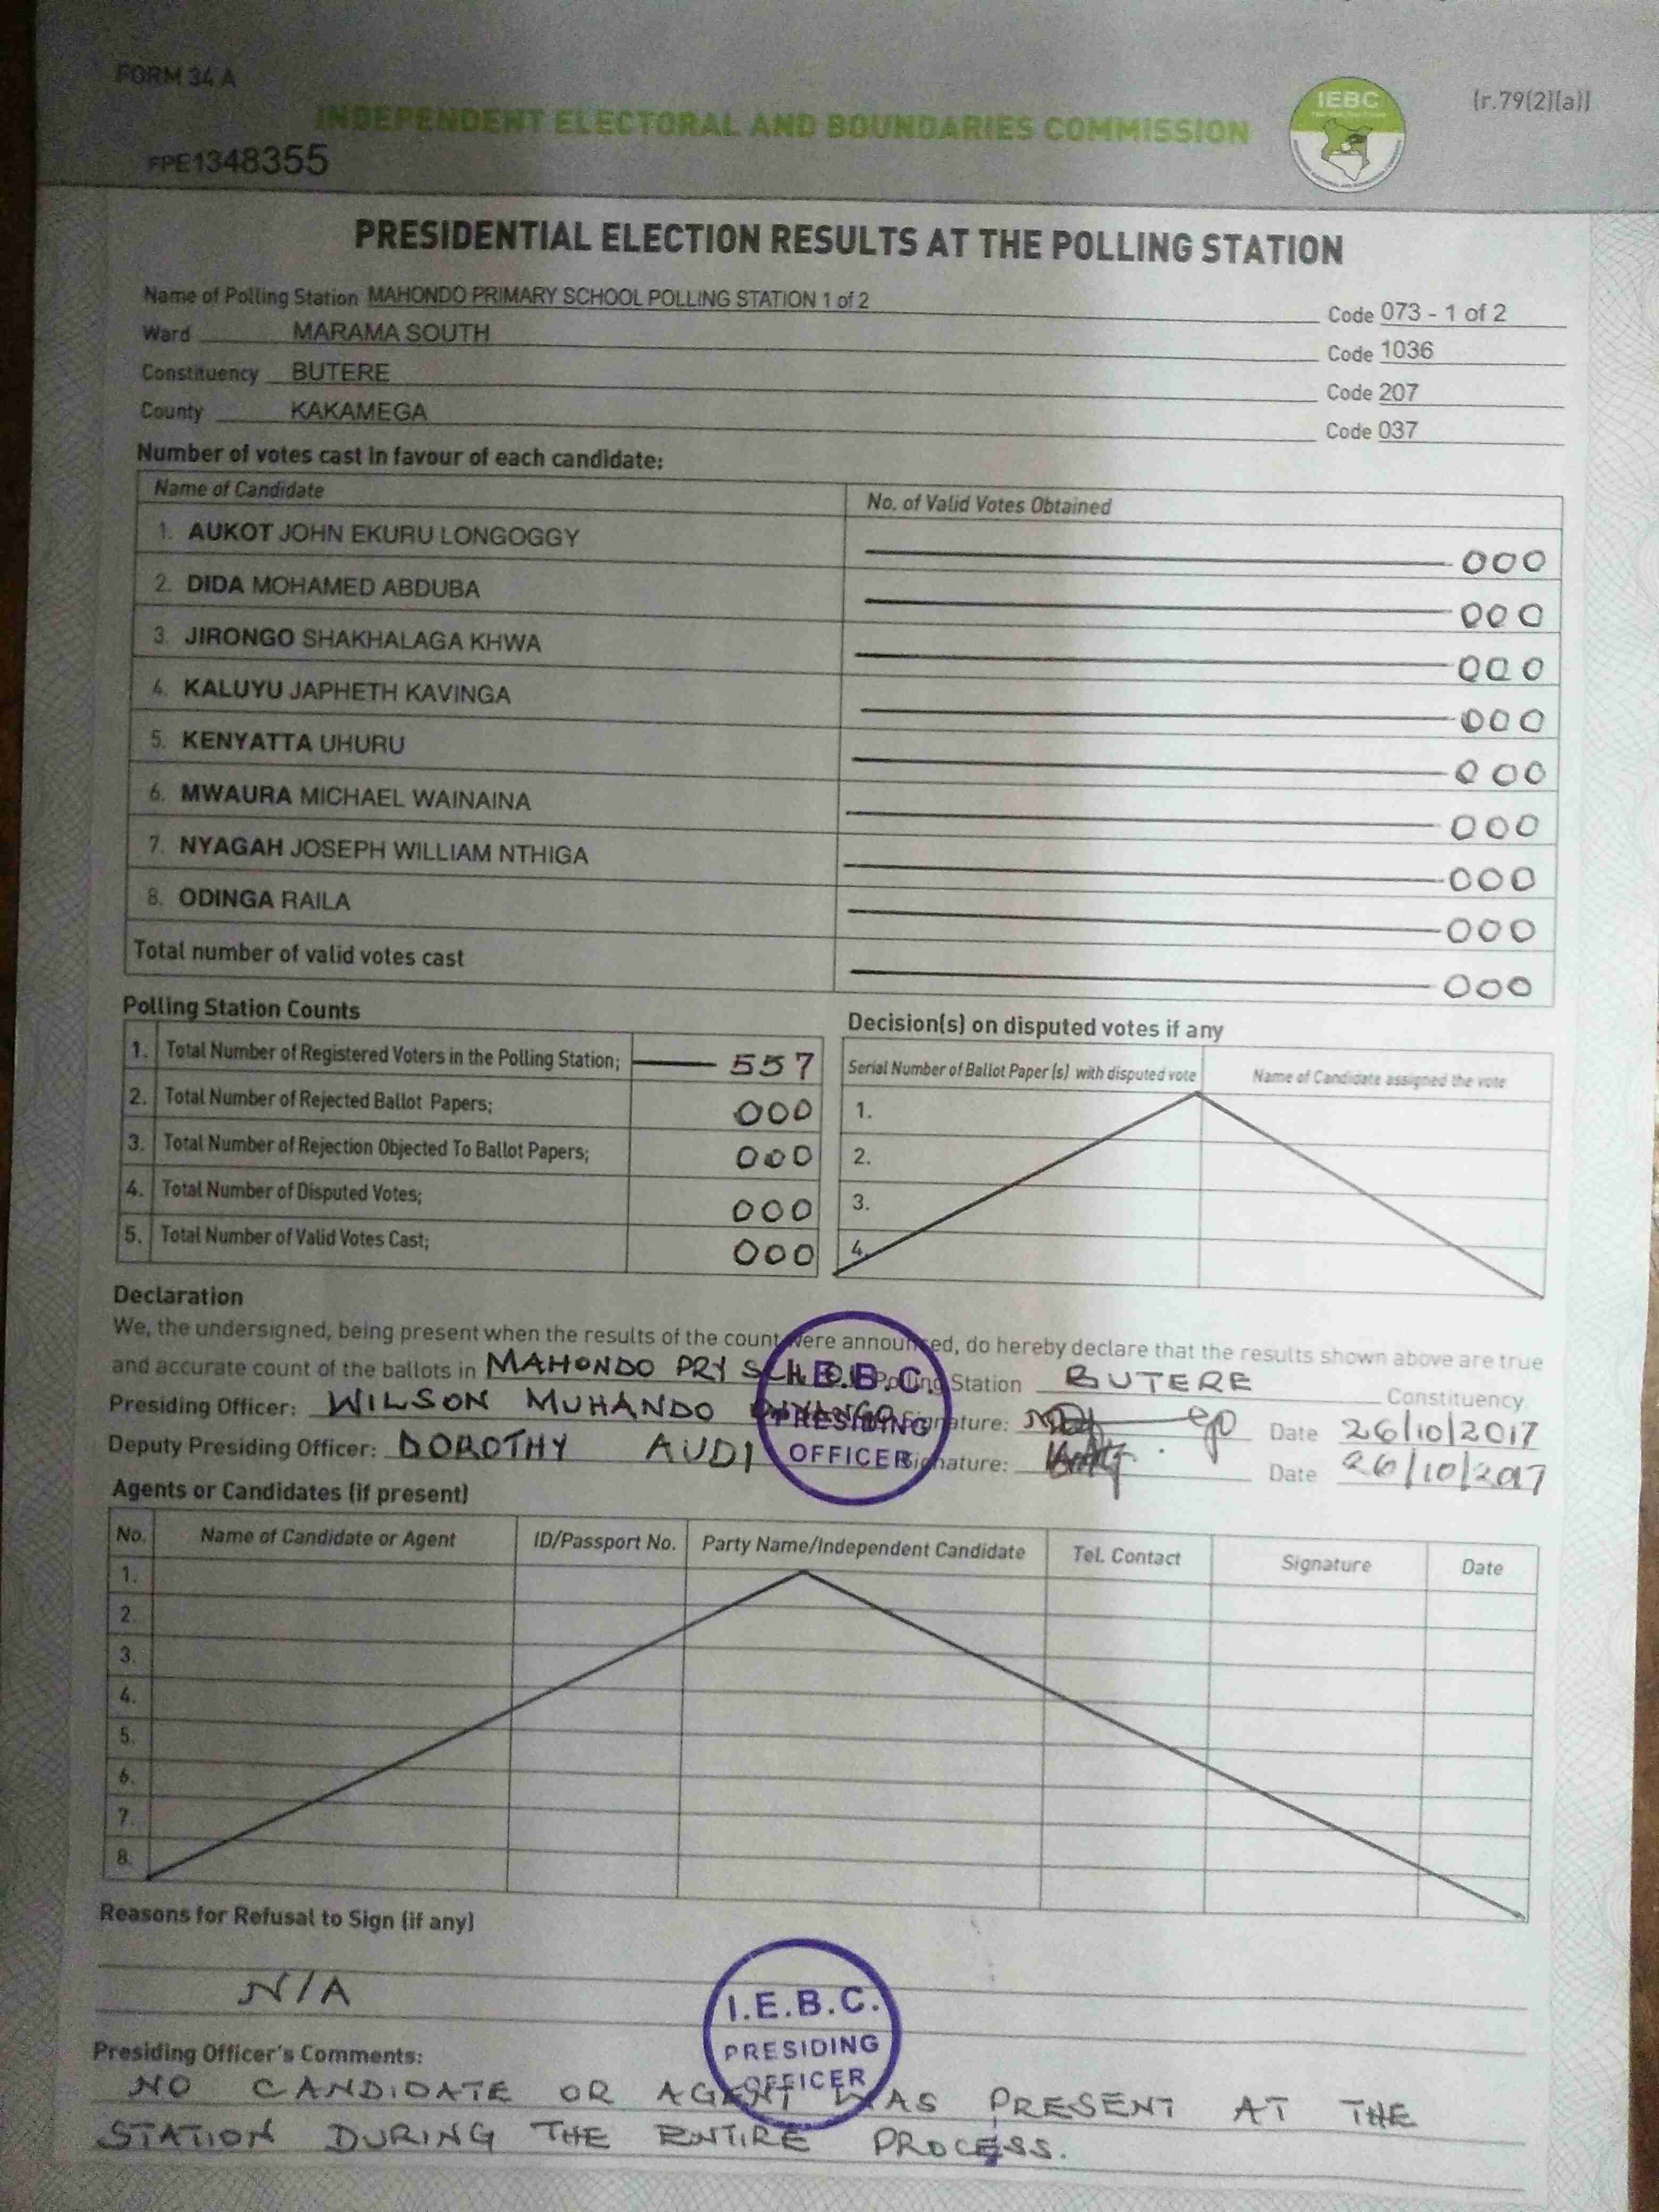 FORM 34 A
(r.79(2)(a))
IEBC
INDEPENDENT ELECTORAL AND BOUNDARIES COMMISSION
FPE1348355
PRESIDENTIAL ELECTION RESULTS AT THE POLLING STATION
Name of Polling Station MAHONDO PRIMARY SCHOOL POLLING STATION 1 of 2 Code 073 - 1 of 2
Ward MARAMA SOUTH Code 1036
Constituency BUTERE Code 207
County KAKAMEGA Code 037
Number of votes cast in favour of each candidate:
Name of Candidate No. of Valid Votes Obtained
1. AUKOT JOHN EKURU LONGOGGY 000
2. DIDA MOHAMED ABDUBA 000
3. JIRONGO SHAKHALAGA KHWA 000
4. KALUYU JAPHETH KAVINGA 000
5. KENYATTA UHURU 000
6. MWAURA MICHAEL WAINAINA 000
7. NYAGAH JOSEPH WILLIAM NTHIGA 000
8. ODINGA RAILA 000
Total number of valid votes cast 000
Polling Station Counts
1. Total Number of Registered Voters in the Polling Station; 557
2. Total Number of Rejected Ballot Papers; 000
3. Total Number of Rejection Objected To Ballot Papers; 000
4. Total Number of Disputed Votes; 000
5. Total Number of Valid Votes Cast; 000
Decision(s) on disputed votes if any
Serial Number of Ballot Paper (s) with disputed vote Name of Candidate assigned the vote
1.
2.
3.
4.
Declaration
We, the undersigned, being present when the results of the count were announced, do hereby declare that the results shown above are true
and accurate count of the ballots in MAHONDO PRY SCH Polling Station BUTERE Constituency.
Presiding Officer: WILSON MUHANDO Signature: Date 26/10/2017
Deputy Presiding Officer: DOROTHY AUDI Signature: Date 26/10/2017
I.E.B.C.
PRESIDING
OFFICER
Agents or Candidates (if present)
No. Name of Candidate or Agent ID/Passport No. Party Name/Independent Candidate Tel. Contact Signature Date
1.
2.
3.
4.
5.
6.
7.
8.
Reasons for Refusal to Sign (if any)
N/A
I.E.B.C.
PRESIDING
OFFICER
Presiding Officer's Comments:
NO CANDIDATE OR AGENT WAS PRESENT AT THE
STATION DURING THE ENTIRE PROCESS.